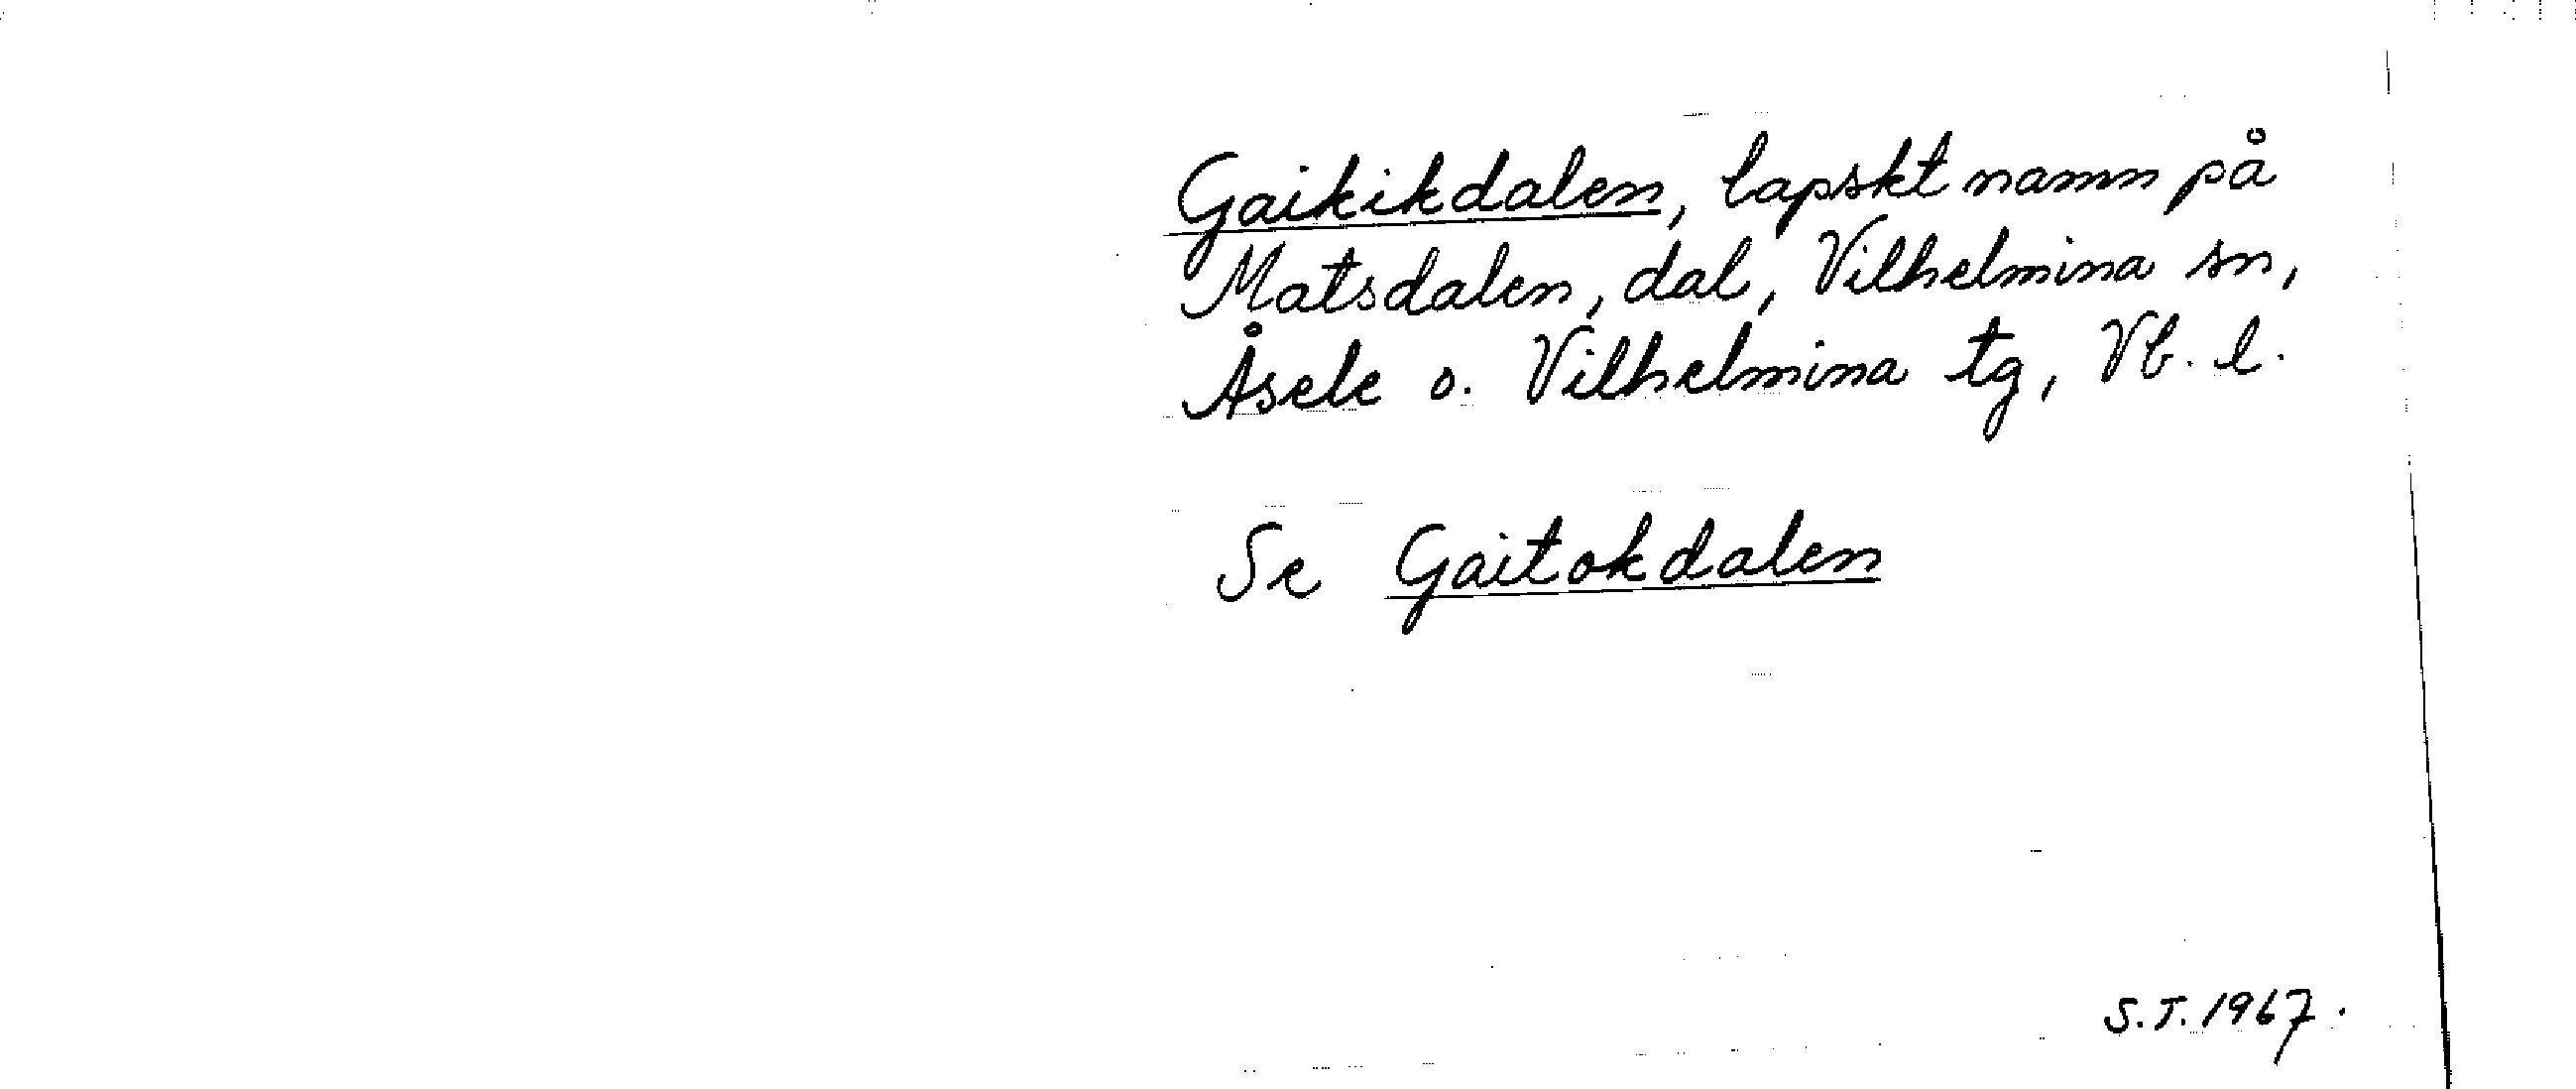 Gaikikdalen, lapskt namn på
Matsdalen, dal, Vilhelmina sn,
Åsele o. Vilhelmina tg, Vb. l.
Se Gaitokdalen
S.T. 1967.